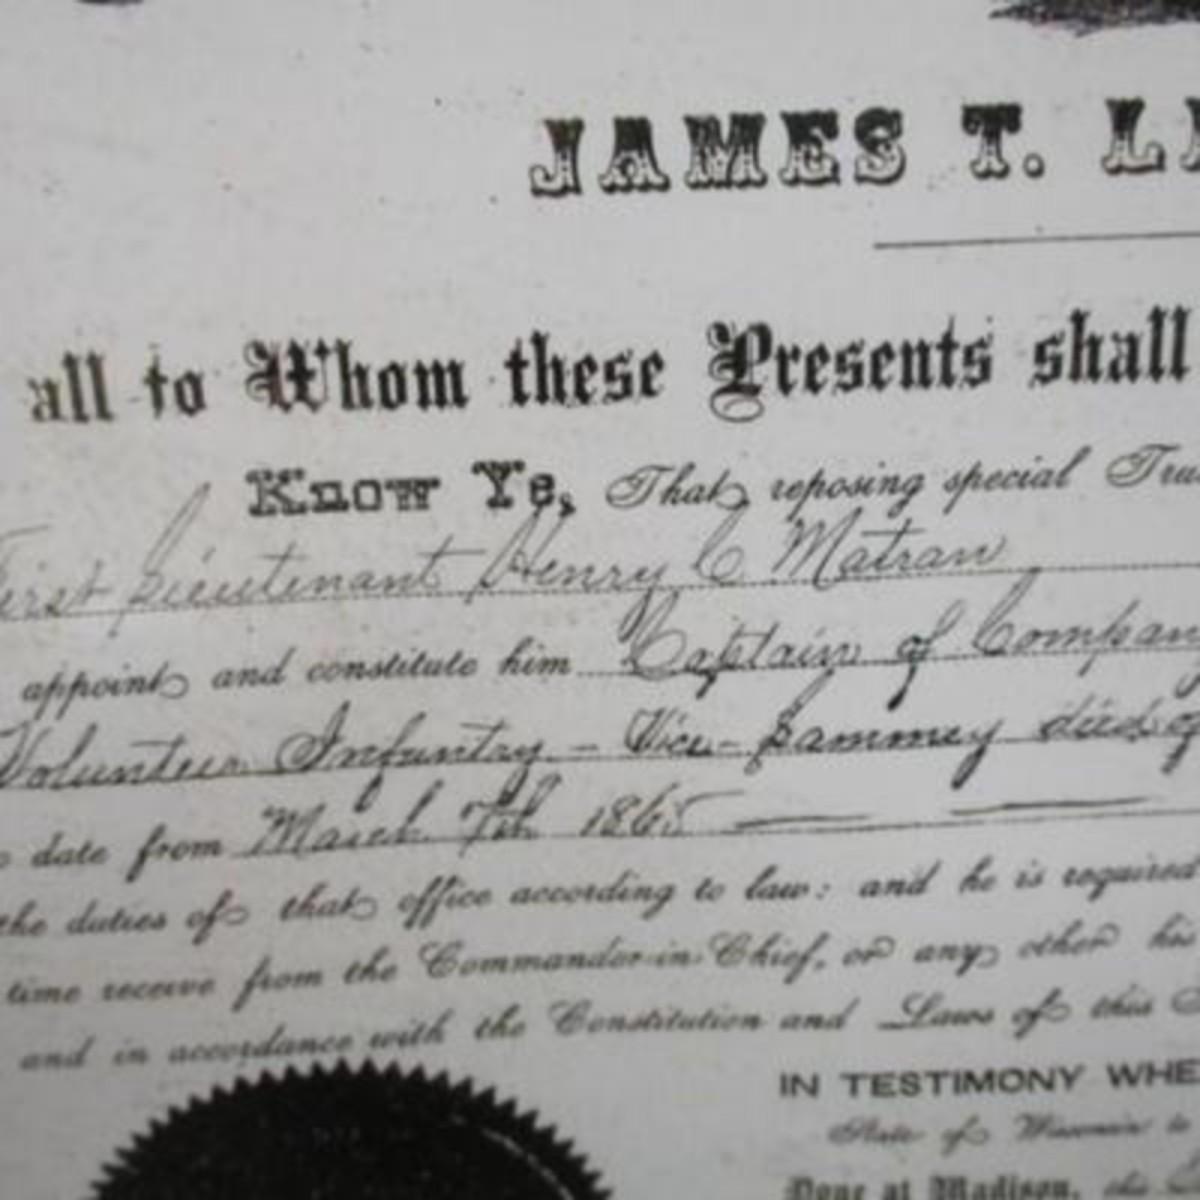 JAMES T. L
all to Whom these Presents shall
Know Ye, That reposing special Tru
First Lieutenant Henry C Matran
appoint and constitute him Captain of Company
Volunteer Infantry - Vice - Lammey died of
date from March 7th 1865
the duties of that office according to law: and he is required
time receive from the Commander-in-Chief, or any other his
and in accordance with the Constitution and Laws of this S
IN TESTIMONY WHE
State of Wisconsin to
Done at Madison, this